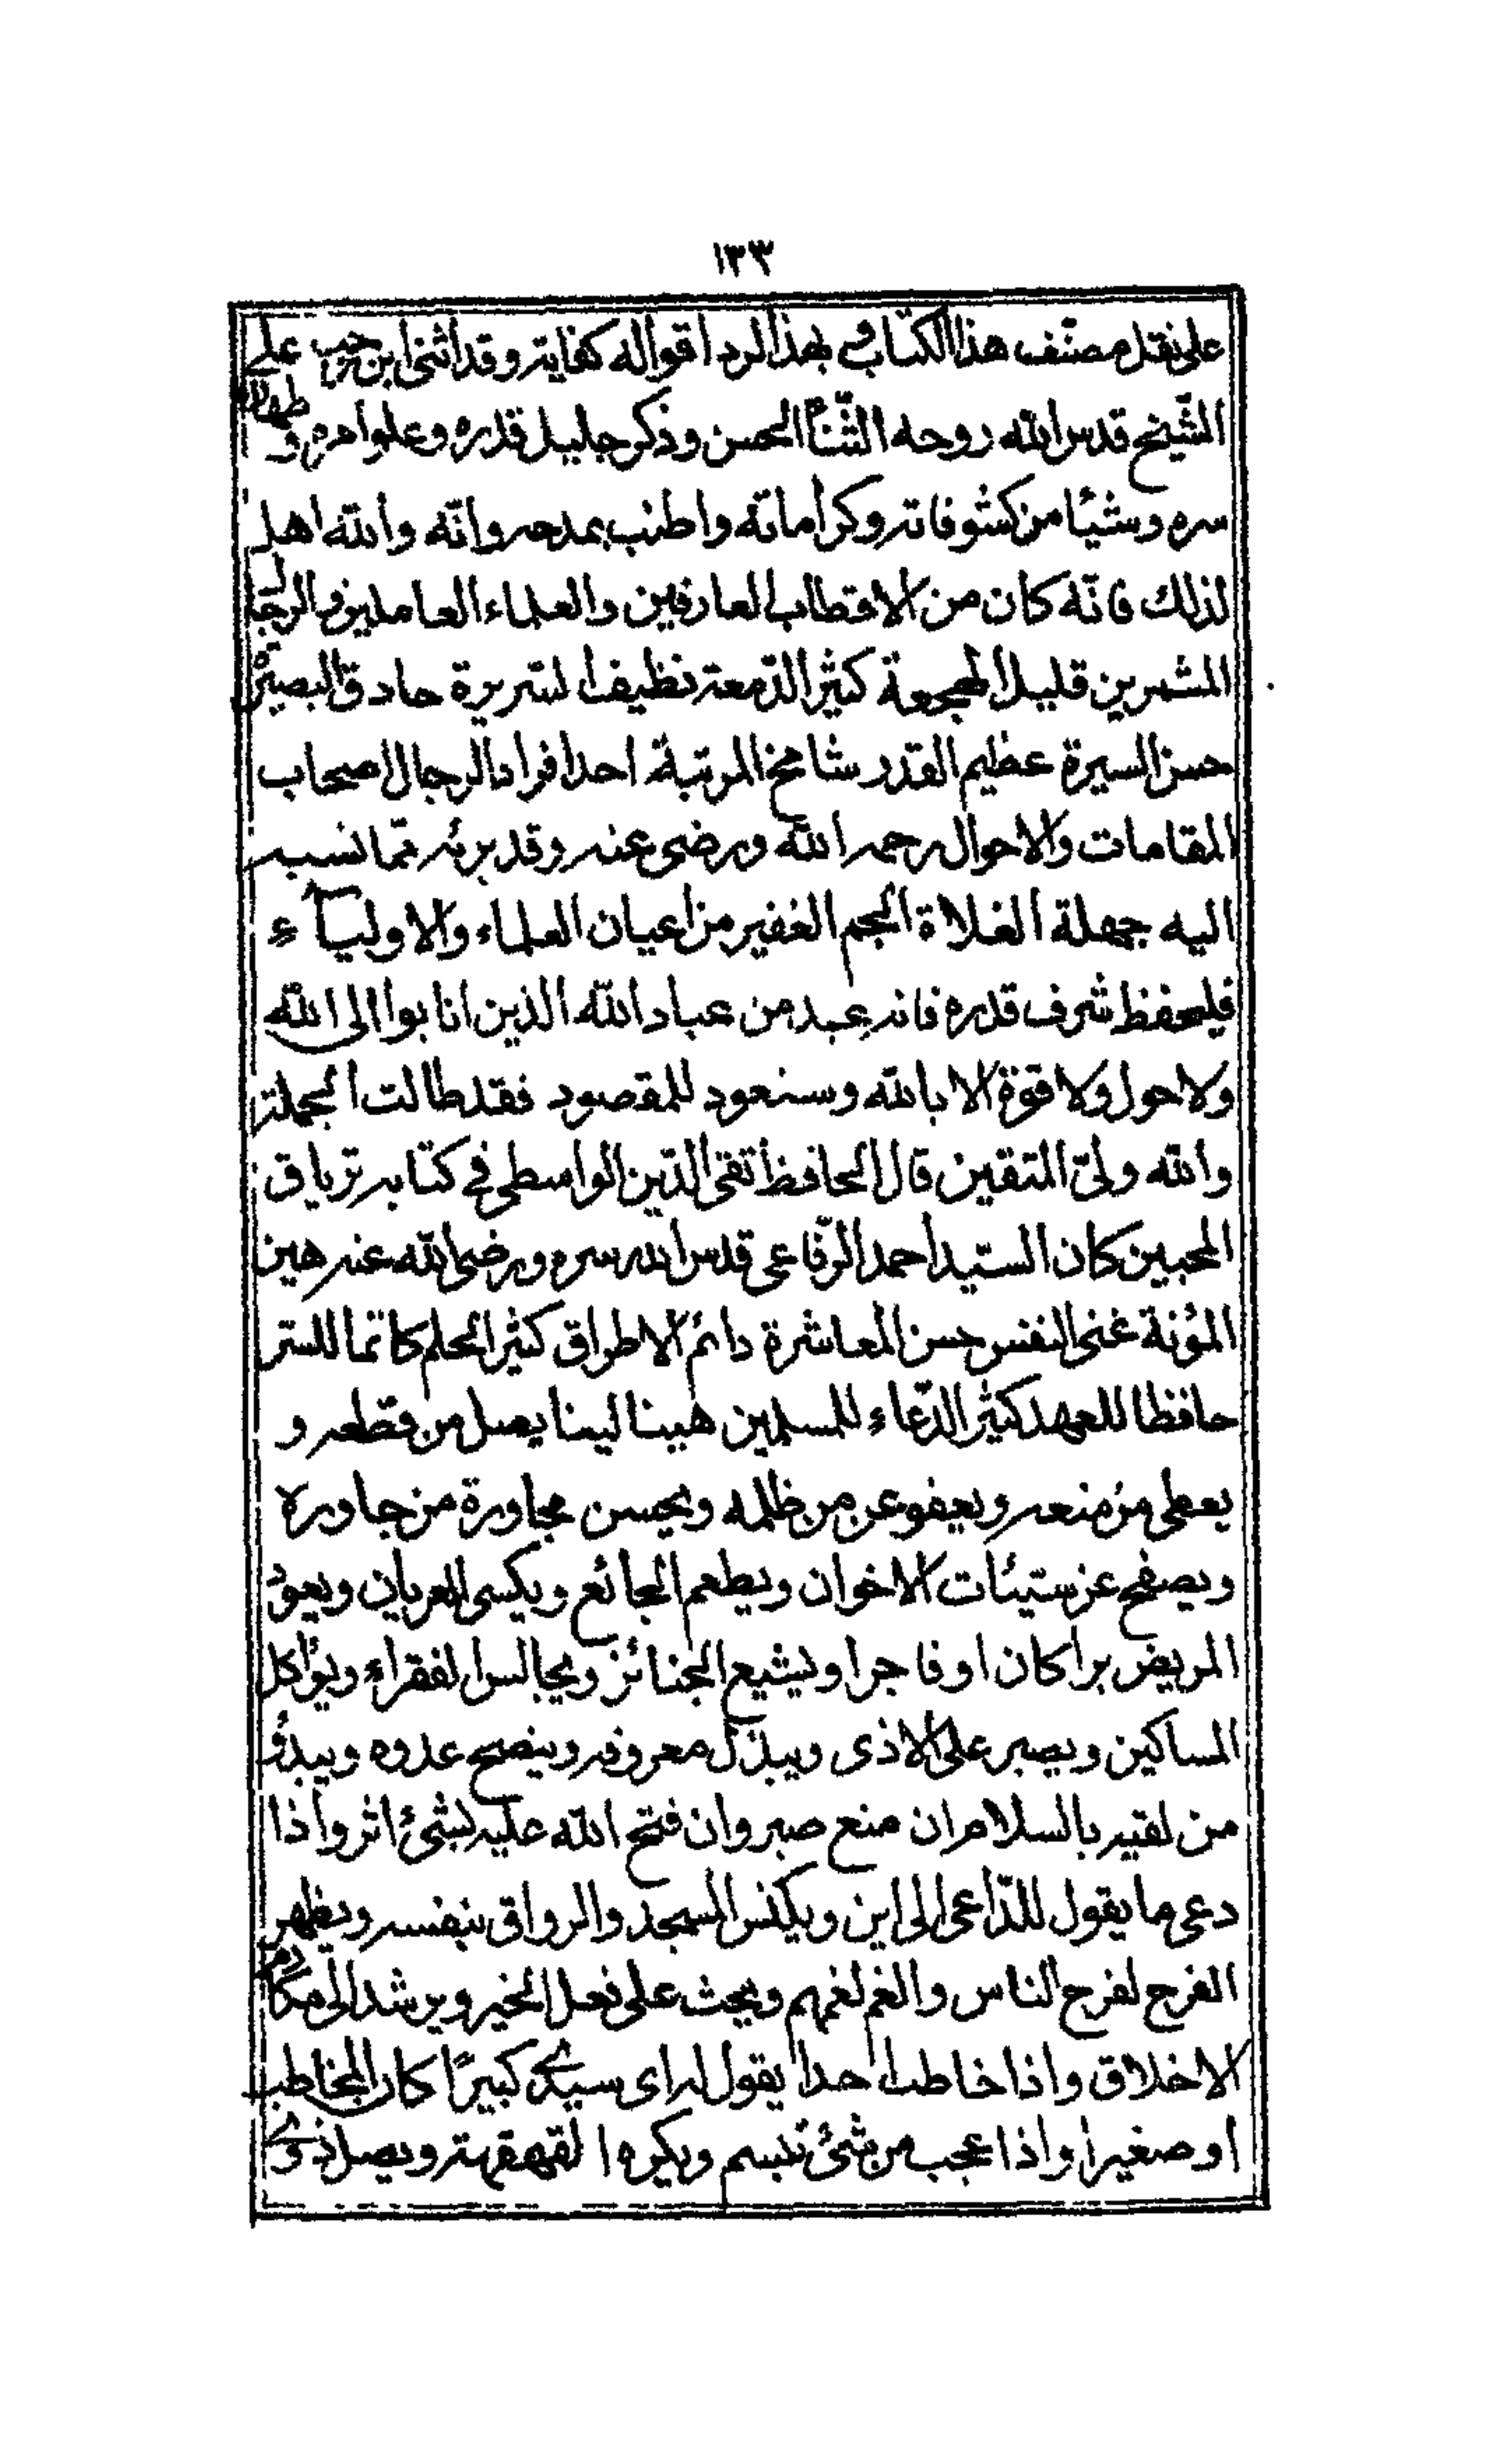 ١٣٣
على نقل مصنف هذا الكتاب وبهذا لرد اقواله كفاية وقد اثنى ابن رجب على
الشيخ قدس الله روحه الثناء الحسن وذكر جليل قدره وعلو امره وطهارة
سره وشيئا من كشوفاته وكراماته واطنب بمدحه وانه والله اهل
لذلك فانه كان من الاقطاب العارفين والعلماء العاملين والرجال
المشمرين قليل الهجعة كثير الدمعة نظيف السريرة حاذق البصيرة
حسن السيرة عظيم القدر شامخ المرتبة احد افراد الرجال اصحاب
المقامات والاحوال رحمه الله ورضى عنه وقد برئه مما نسبه
اليه جهلة الغلاة الجم الغفير من اعيان العلماء والاولياء
فليحفظ شرف قدره فانه عبد من عباد الله الذين انابوا الى الله
ولا حول ولا قوة الا بالله وسنعود للمقصود فقد طالت الجملة
والله ولى المتقين قال الحافظ تقى الدين الواسطى في كتابه ترياق
المحبين كان السيد احمد الرفاعى قدس الله سره ورضى الله عنه هين
المؤنة غنى النفس حسن المعاشرة دائم الاطراق كثير الحلم كاتما للسر
حافظا للعهد كثير الدعاء للمسلمين هينا لينا يصل من قطعه و
يعطى من منعه ويعفو عن من ظلمه ويحسن مجاورة من جاوره
ويصفح عن سيئات الاخوان ويطعم الجائع ويكسى العريان ويعود
المريض برا كان او فاجرا ويشيع الجنائز ويجالس الفقراء ويؤاكل
المساكين ويصبر على الاذى ويبذل معروفه وينصح عدوه ويبدؤ
من لقيه بالسلام ان منع صبر وان فتح الله عليه بشئ اثر واذا
دعى ما يقول للداعى الى اين ويكنس المسجد والرواق بنفسه ويظهر
الفرح لفرح الناس والغم لغمهم ويحث على فعل الخير ويرشد الى مكارم
الاخلاق واذا خاطب احدا يقول له اى سيدى كبيرا كان المخاطب
او صغيرا واذا عجب من شئ تبسم ويكره القهقهة ويصل ذوى